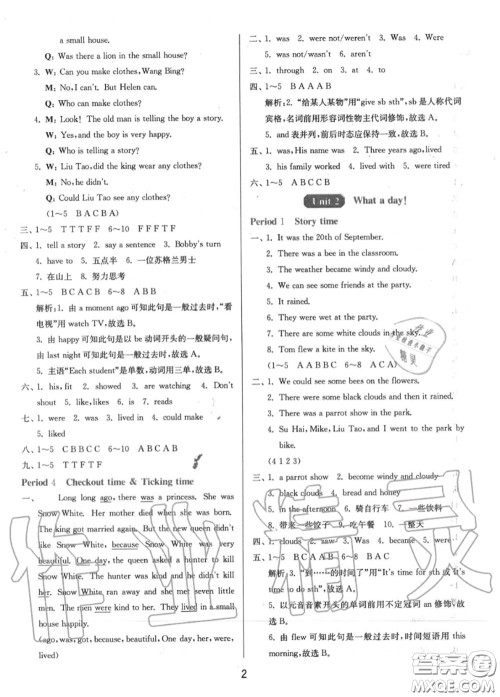 a small house.
Q: Was there a lion in the small house?
3. W: Can you make clothes, Wang Bing?
M: No, I can't. But Helen can.
Q: Who can make clothes?
4. M: Look! The old man is telling the boy a story.
W: Yes, and the boy is very happy.
Q: Who is telling a story?
5. W: Liu Tao, did the king wear any clothes?
M: No, he didn't.
Q: Could Liu Tao see any clothes?
(1~5 BACBA)
三、1~5 TTTFF 6~10 FFFTF
四、1. tell a story 2. say a sentence 3. Bobby's turn
4. have to 5. 五点半 6. 一位苏格兰男士
7. 在山上 8. 努力思考
五、1~5 BCACB 6~8 ABB
解析:1. 由 a moment ago 可知此句是一般过去时,“看
电视”用 watch TV,故选 B。
3. 由 happy 可知此句是以 be 动词开头的一般疑问句,
由 last night 可知此句是一般过去时,故选 B。
5. 主语“Each student”是单数,动词用三单,故选 B。
六、1. his, fit 2. showed 3. are watching 4. Don't
shout 5. like, likes 6. is 7. reads
七、1. were 2. was 3. lived in 4. could make
5. liked
八、1~5 CBBCC 6~10 ABCAB
九、1~5 TTFTF
Period 4 Checkout time & Ticking time
一、 Long long ago, there was a princess. She was
Snow White. Her mother died when she was born.
The king got married again. But the new queen didn't
like Snow White, because Snow White was very
beautiful. One day, the queen asked a hunter to kill
Snow White. The hunter was kind and he didn't kill
her. Snow White ran away and she met seven little
men. The men were kind to her. They lived in a small
house.
(ago, was, got, because, beautiful, One day, her, were,
lived)
二、1. was 2. are not/were not 3. Was 4. Were
5. was not/wasn't 6. aren't
三、1. through 2. on 3. at 4. to
四、1~5 BAAAB
解析:2. “给某人某物”用“give sb sth”,sb 是人称代词
宾格,名词前用形容词性物主代词修饰,故选 A。
5. and 表并列,前后时态应保持一致,故选 B。
五、1. was, His name was 2. Three years ago, lived
3. his family worked 4. lived with 5. were tired
六、1~5 ABCCB
Unit 2 What a day!
Period 1 Story time
一、1. It was the 20th of September.
2. There was a bee in the classroom.
3. The weather became windy and cloudy.
4. We can see some friends at the party.
5. It rained.
6. They were wet at the party.
7. There are some white clouds in the sky.
8. Tom flew a kite in the sky.
(1~5 AABBC 6~8 ACA)
二、1. We could see some bees on the flowers.
2. There were some black clouds and then it rained.
3. There was a parrot show in the park.
4. Su Hai, Mike, Liu Tao, and I went to the park by
bike.
(4 1 2 3)
三、1. a parrot show 2. become windy and cloudy
3. black clouds 4. bread and honey
5. in the afternoon 6. 骑自行车 7. 一些饮料
8. 带来一些饺子 9. 吃午餐 10. 一整天
四、1. clouds 2. saw 3. Was 4. became 5. were
五、1~5 BCAAB 6~8 BAC
解析:3. “到……的时间了”用“It's time for sth 或 It's
time to do sth”,故选 A。
5. 以元音音素开头的单词前用不定冠词 an 修饰,故选
B。
6. 由 flew 可知此句是一般过去时,时间短语用 this
morning,故选 B。
2
作业精灵
答案圈
MXQE.COM